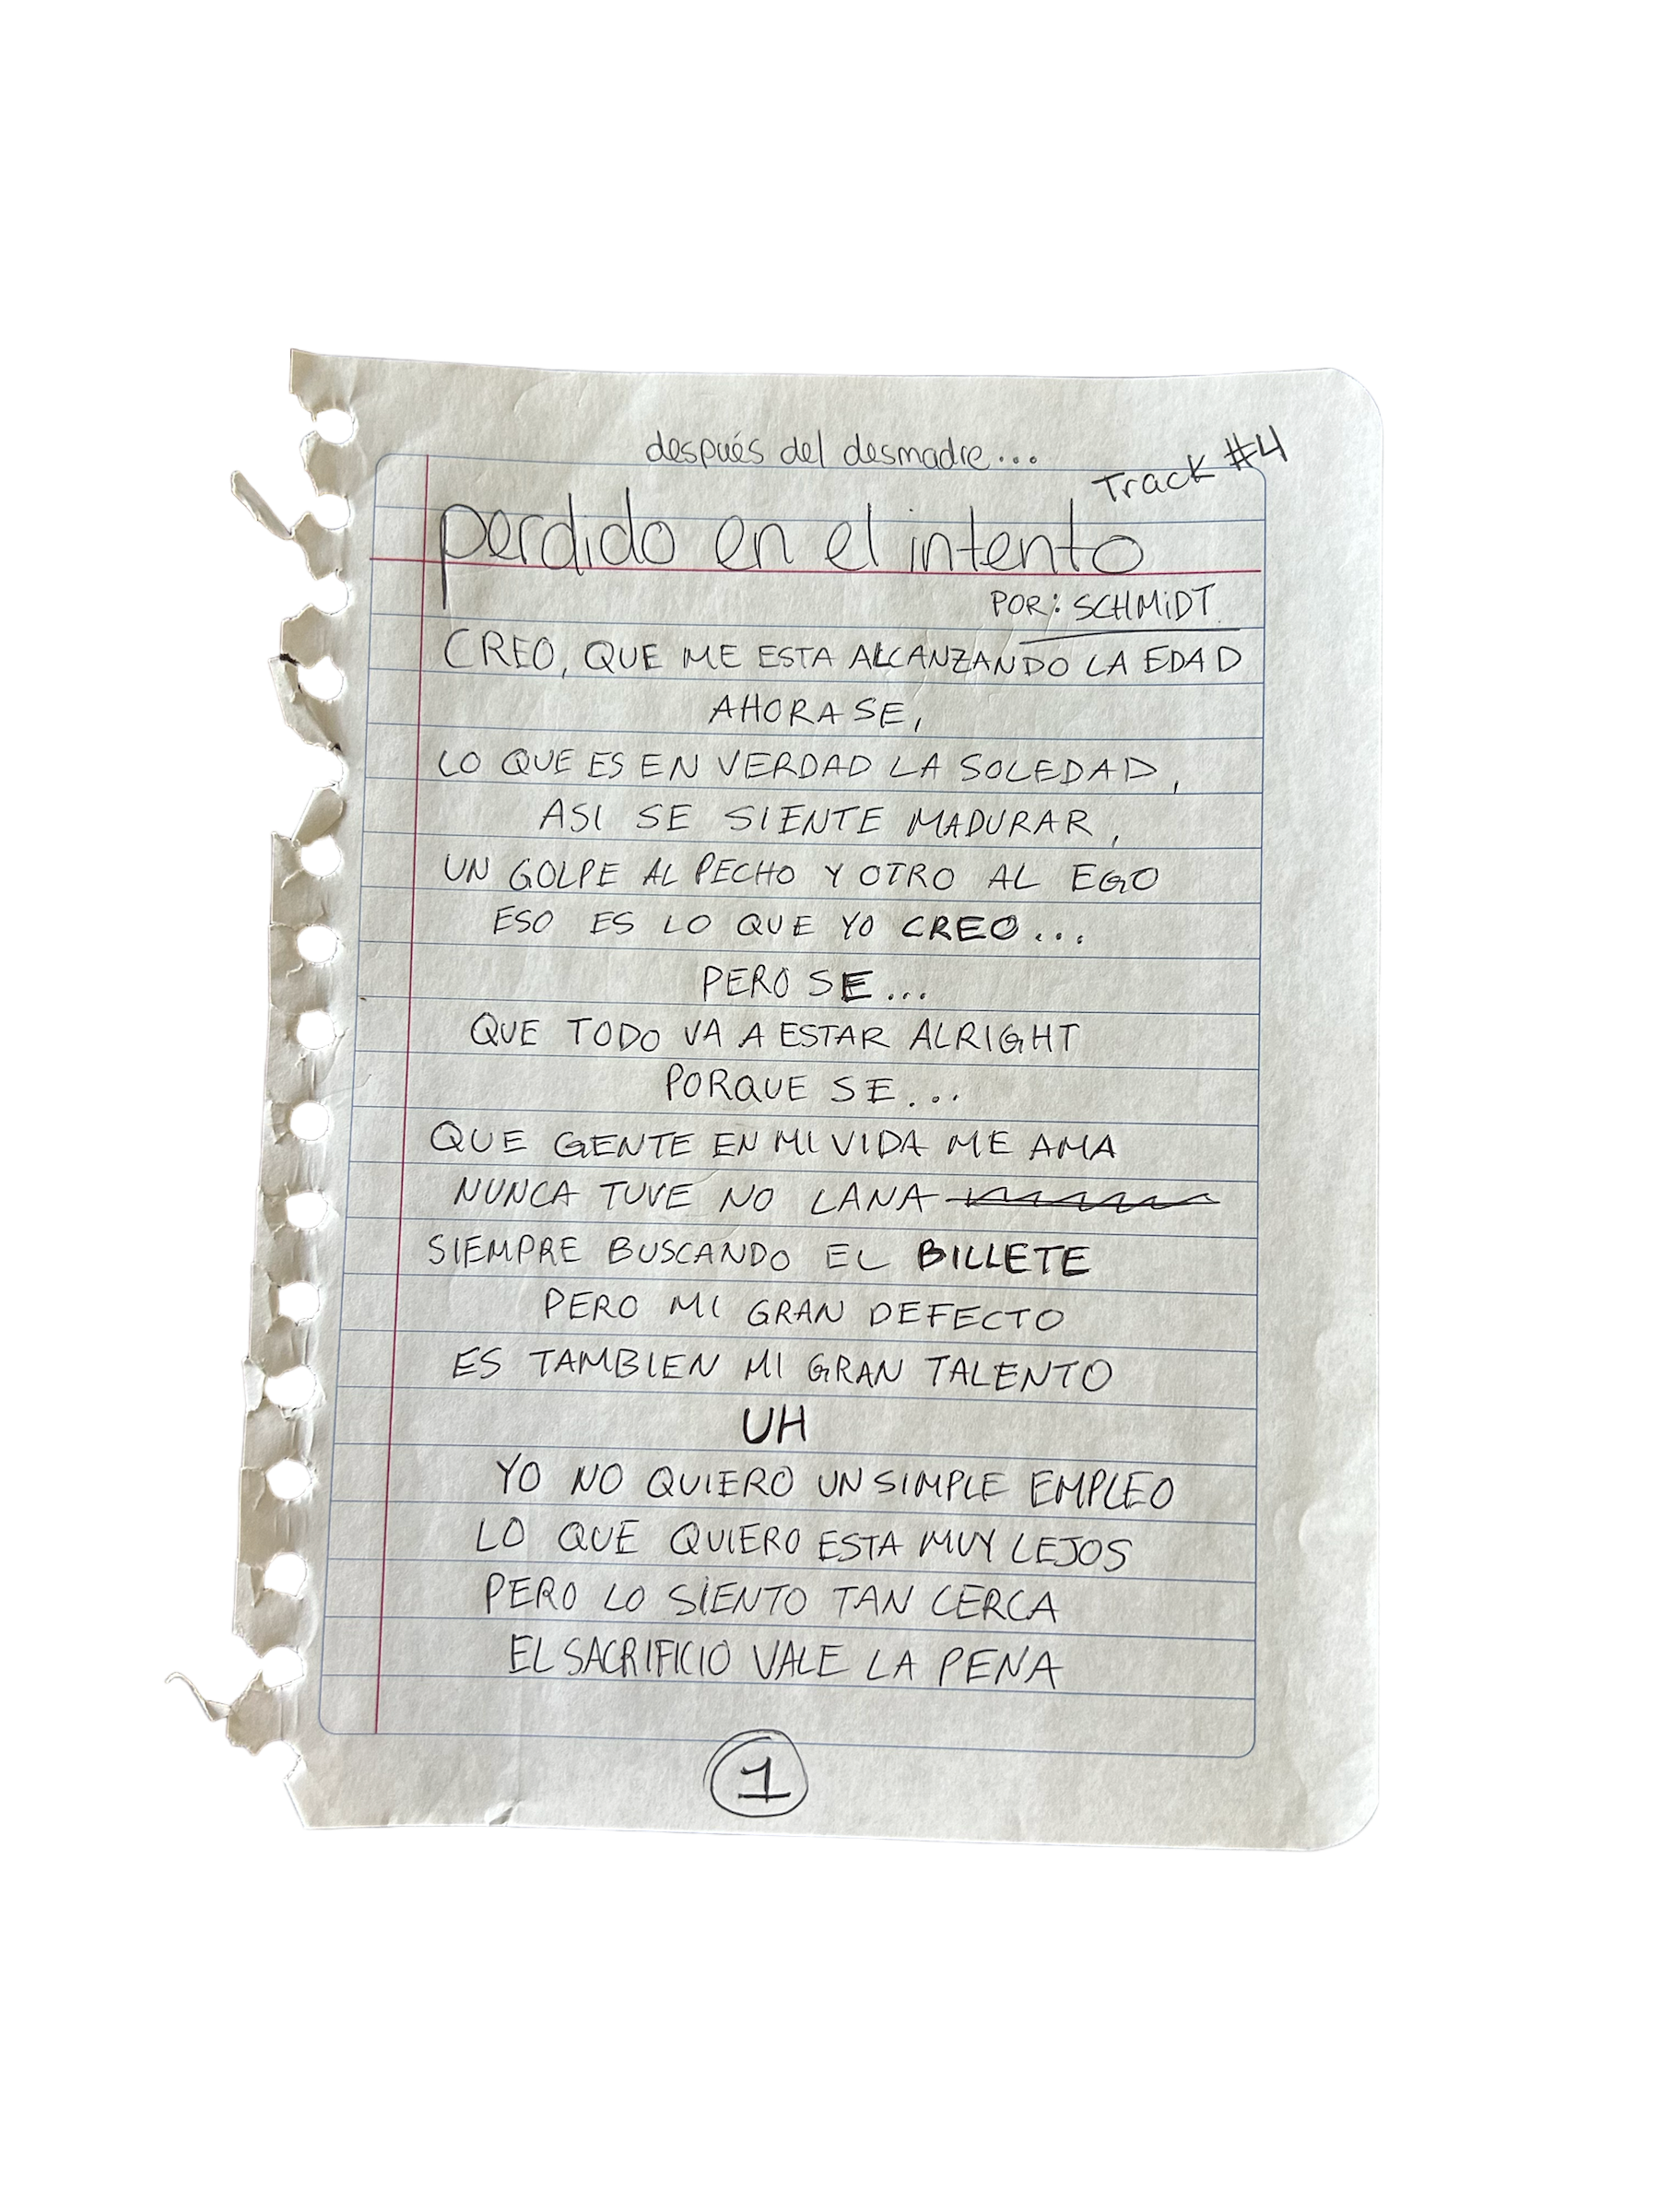 después del desmadre...
Track #4
perdido en el intento
POR: SCHMIDT.
CREO, QUE ME ESTA ALCANZANDO LA EDAD
AHORA SE,
LO QUE ES EN VERDAD LA SOLEDAD,
ASI SE SIENTE MADURAR,
UN GOLPE AL PECHO Y OTRO AL EGO
ESO ES LO QUE YO CREO...
PERO SE...
QUE TODO VA A ESTAR ALRIGHT
PORQUE SE...
QUE GENTE EN MI VIDA ME AMA
NUNCA TUVE NO LANA
SIEMPRE BUSCANDO EL BILLETE
PERO MI GRAN DEFECTO
ES TAMBIEN MI GRAN TALENTO
UH
YO NO QUIERO UN SIMPLE EMPLEO
LO QUE QUIERO ESTA MUY LEJOS
PERO LO SIENTO TAN CERCA
EL SACRIFICIO VALE LA PENA
1